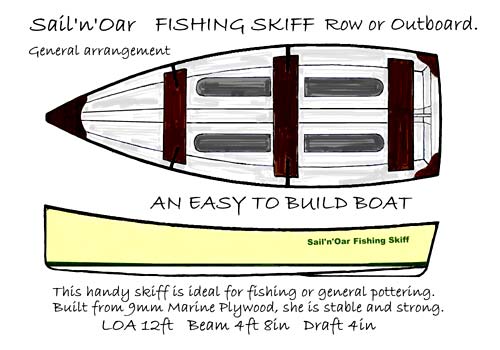 Sail'n'Oar FISHING SKIFF Row or Outboard.
General arrangement
AN EASY TO BUILD BOAT
Sail'n'Oar Fishing Skiff
This handy skiff is ideal for fishing or general pottering.
Built from 9mm Marine Plywood, she is stable and strong.
LOA 12ft Beam 4ft 8in Draft 4in